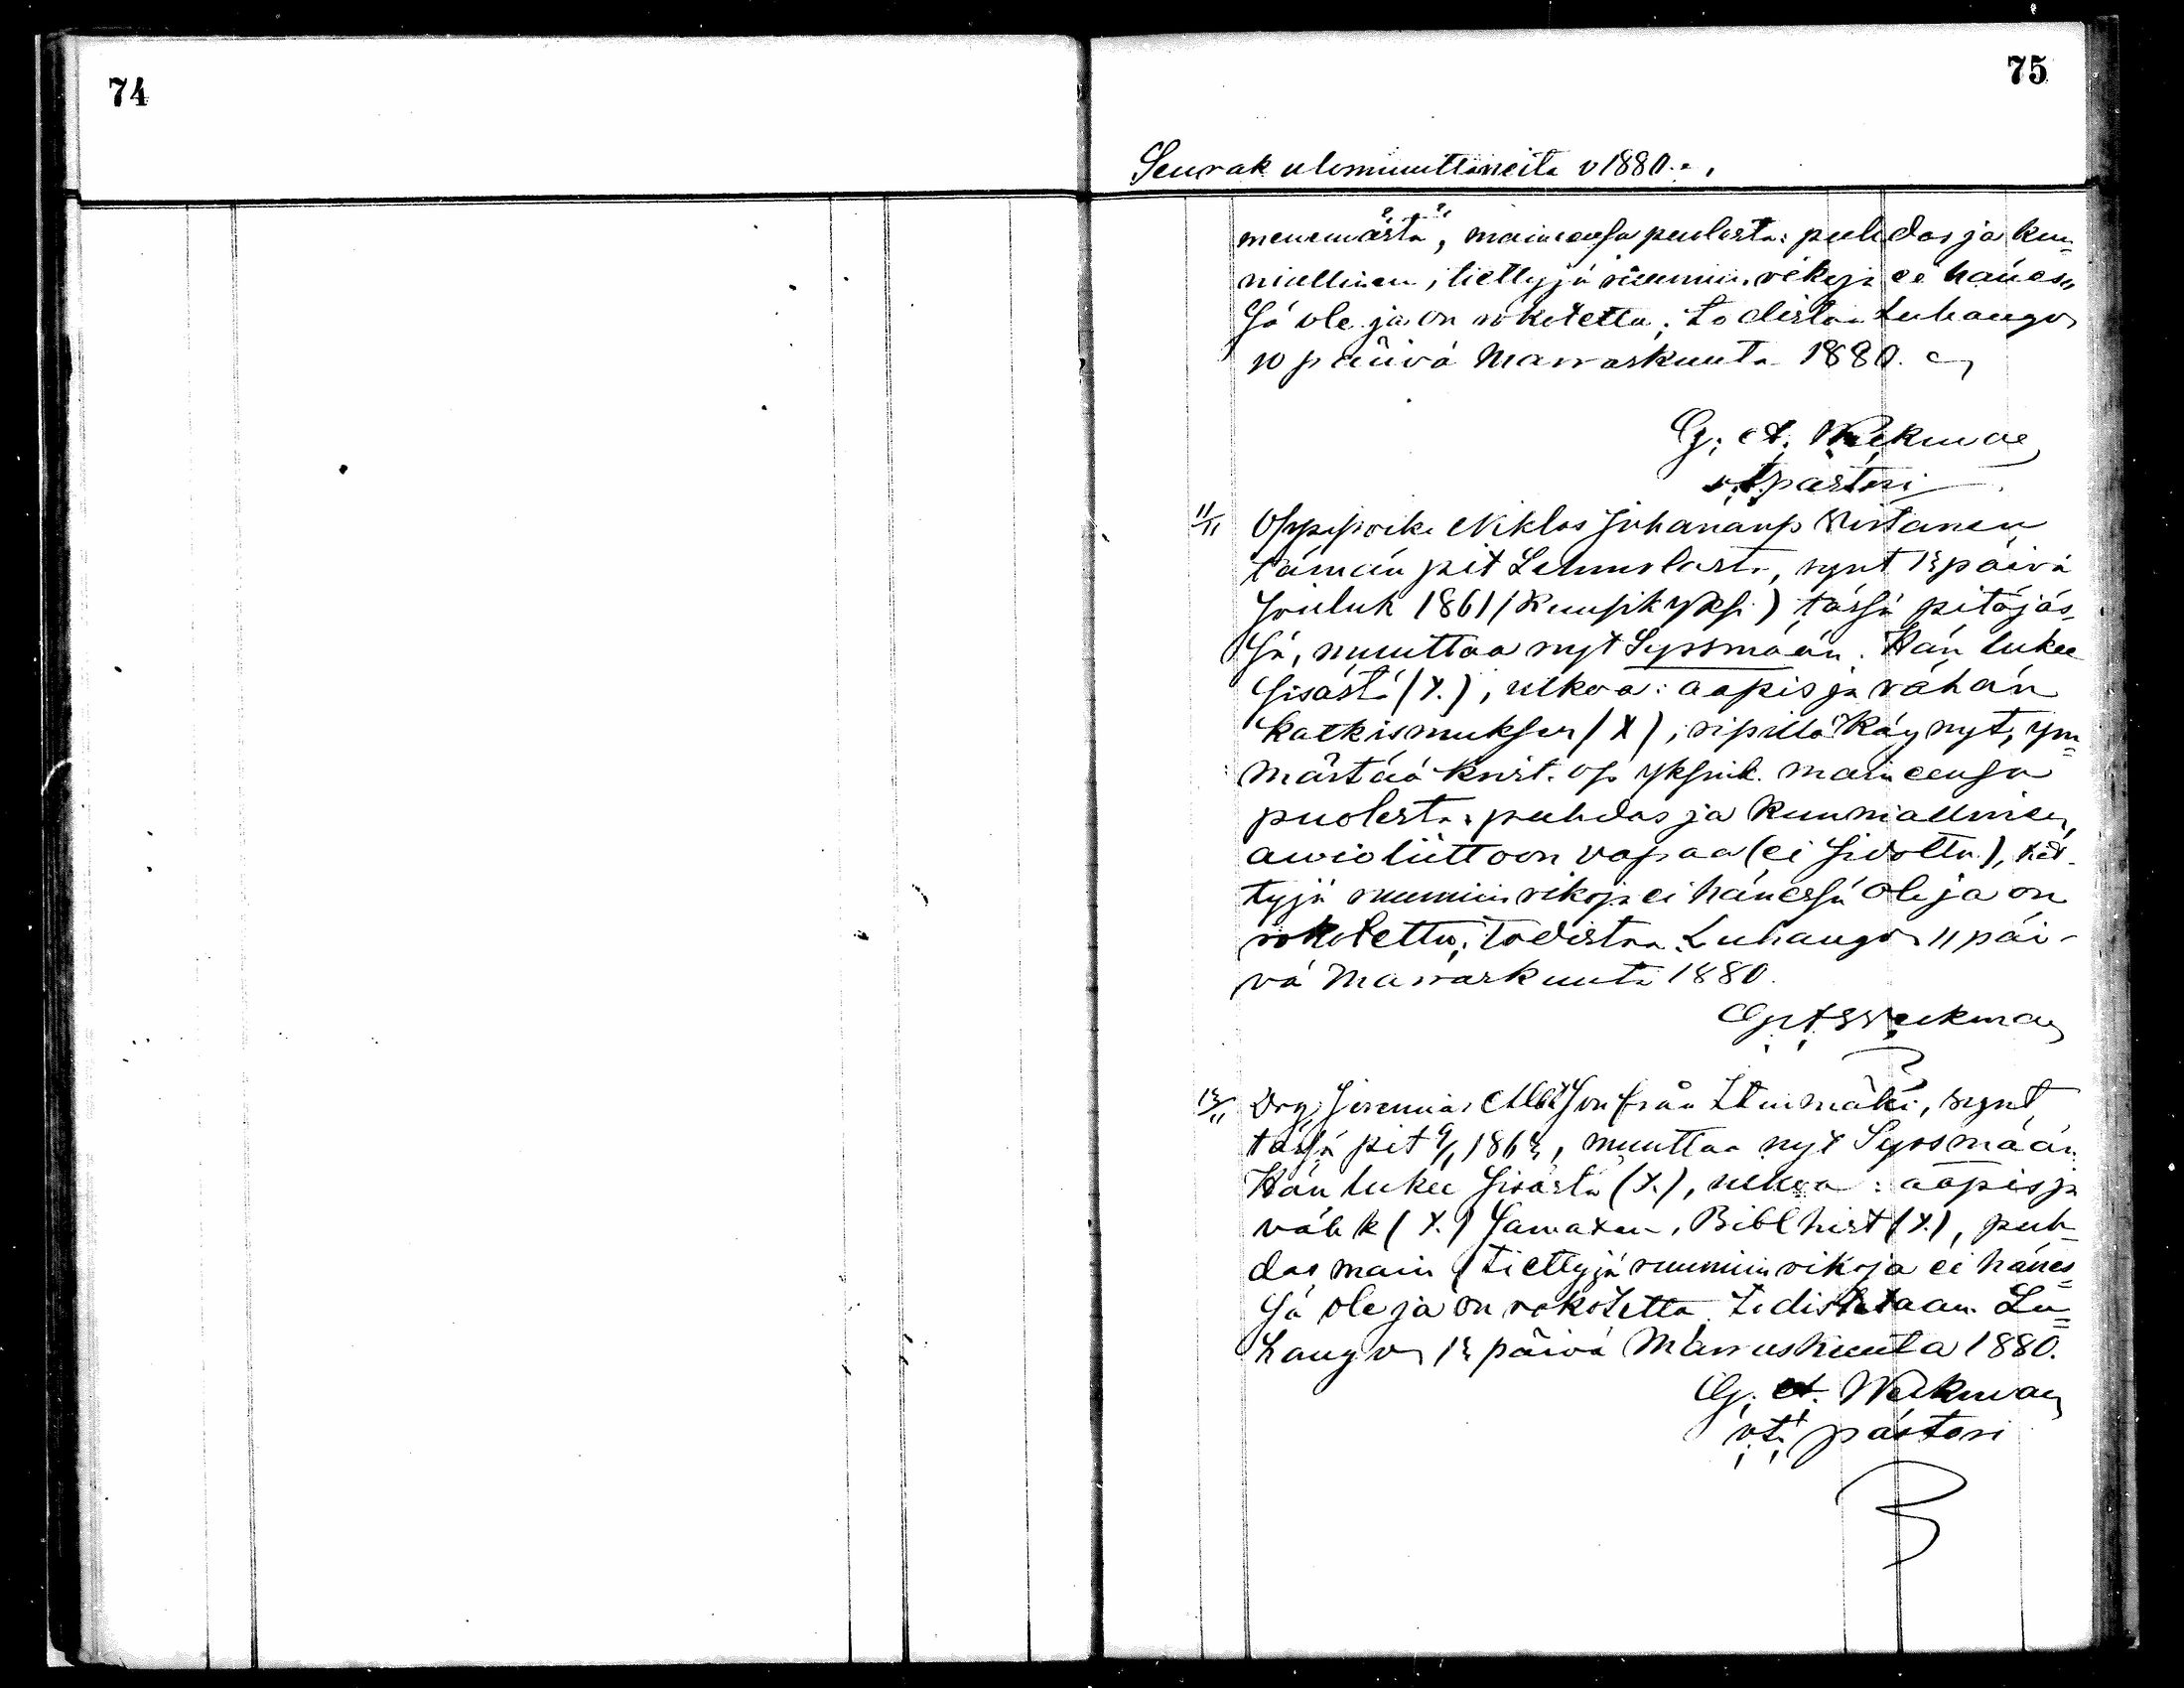 74
75
Seurak ulosmuuttaneita v 1880.
menemästä", maineensa puolesta: puhdas ja kun-
niallinen, tiettyjä ruumiin vikoja ei hänes„
sä ole ja on rokotettu; todistaa Luhangos
10 päivä Marraskuuta 1880.
G. A. Wekman
v.t. pastori
11/11 Oppipoika Niklas Juhananp
tämän pit Lemmolasta, synt 13 päivä
Jouluk 1861 (kuusik yksi) tässä pitäjäs-
sä, muuttaa nyt Syssmään. Hän lukee
sisästä (X.), ulkoa: aapis ja vähän
katkismuksen (X), ripillä käynyt, ym-
märtää krist. op yksink. maineensa
puolesta: puhdas ja kunniallinen,
awioliittoon vapaa (ei sidottu), tiet-
tyjä ruumiin vikoja ei hänessä ole ja on
rokotettu; todistaa Luhangos 11 päi-
vä Marraskuuta 1880.
G. A. Wekman
13/11 Drg Jeremias från, synt
tässä pit 9/1 1863, muuttaa nyt Syssmään
Hän lukee sisästä (X.), ulkoa: aapis ja
väh k (X.) Biblhist (X.), puh-
das main tiettyjä ruumiin vikoja ei hänes-
sä ole ja on rokotettu todistetaan Lu-
hangos 13 päivä Marraskuuta 1880.
G. A. Wekman
v.t. pastori